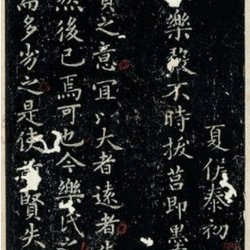 夏侯泰初
樂毅不時拔莒即墨
之意宜以大者遠者
然後已焉可也今樂氏之
而多劣之是使賢失